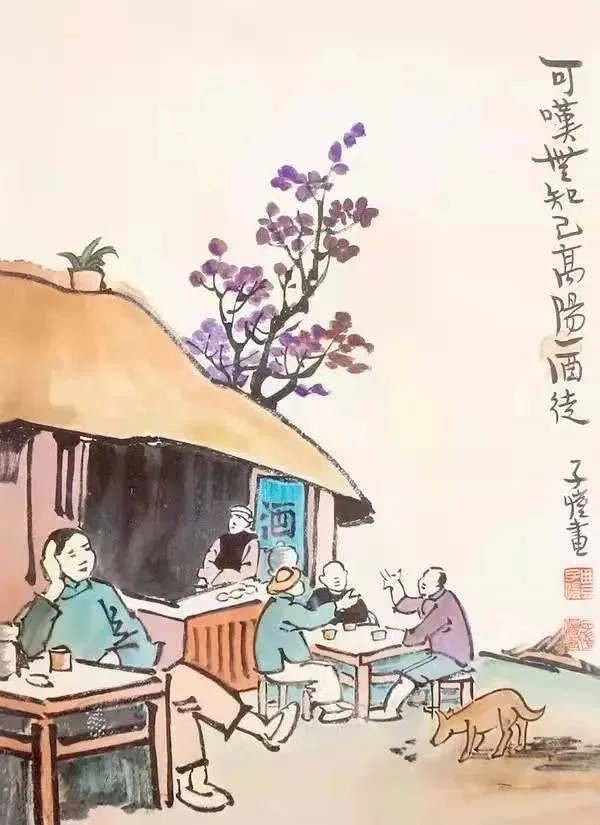 可嘆無知己高陽一酒徒
子愷畫
酒